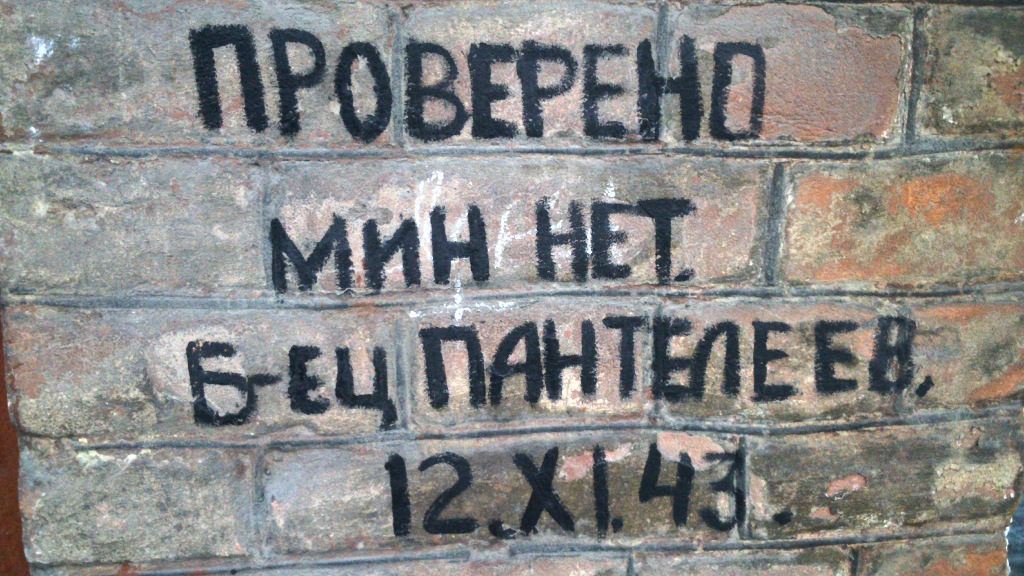 ПРОВЕРЕНО
МИН НЕТ.
Б-ЕЦ ПАНТЕЛЕЕВ.
12.XI.43.